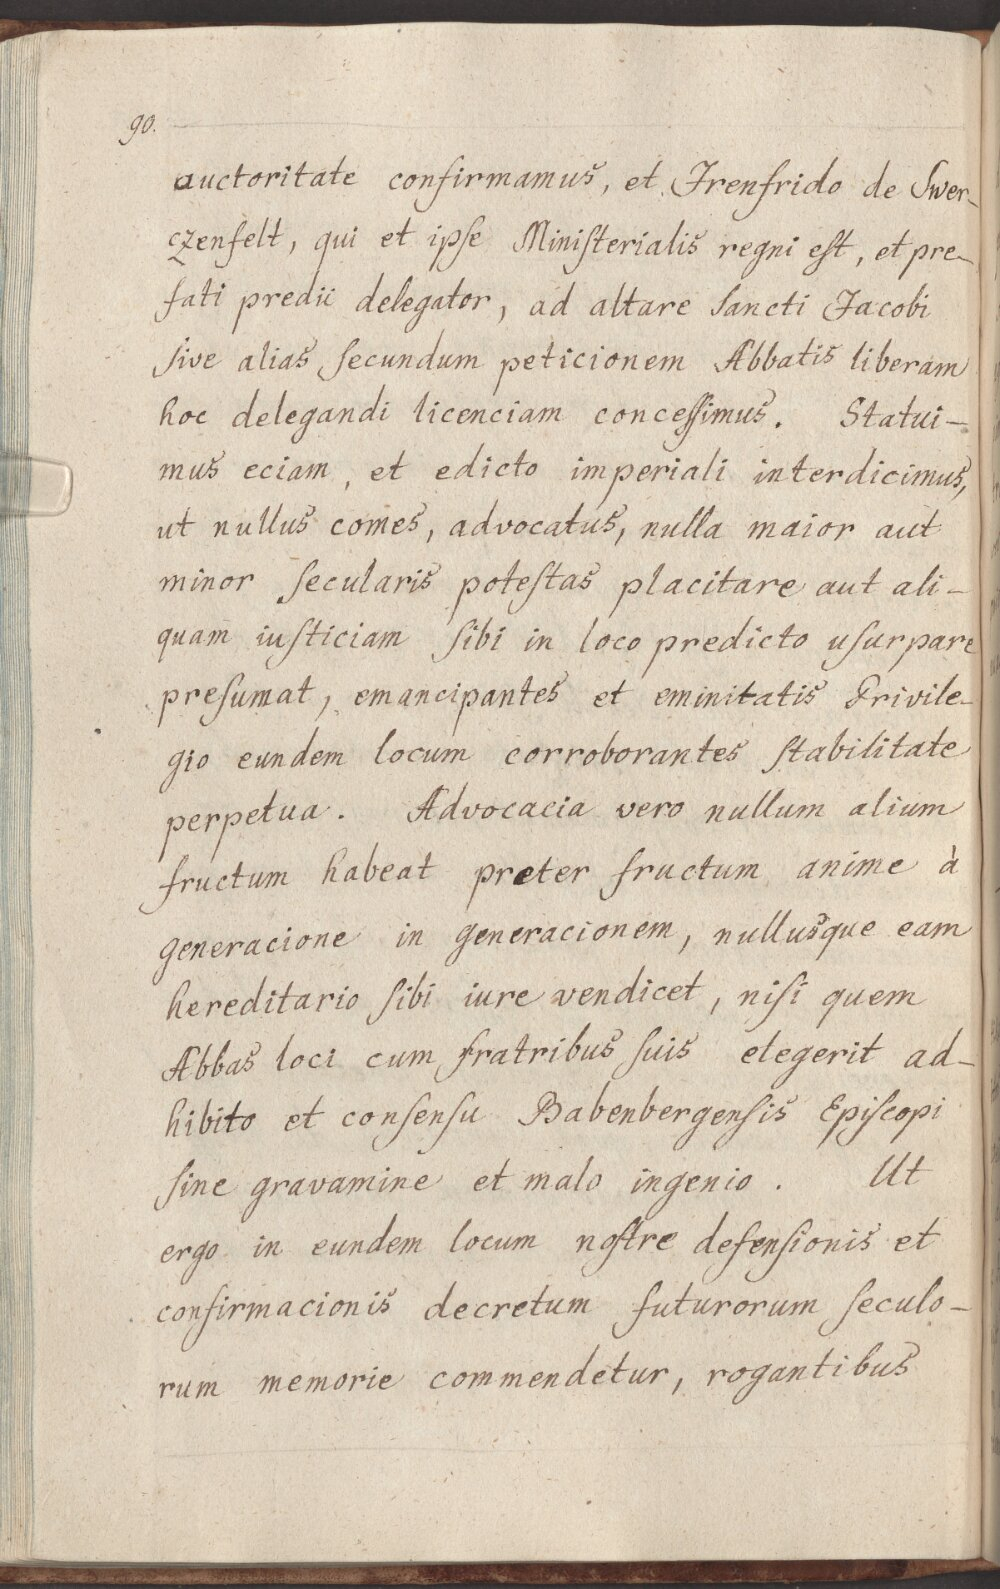 90.
auctoritate confirmamus, et Irenfrido de Swer-
czenfelt, qui et ipse Ministerialis regni est, et pre-
fati predii delegator, ad altare Sancti Jacobi
sive alias secundum peticionem Abbatis liberam
hoc delegandi licenciam concessimus. Statui-
mus eciam, et edicto imperiali interdicimus,
ut nullus comes, advocatus, nulla maior aut
minor secularis potestas placitare aut ali-
quam iusticiam sibi in loco predicto usurpare
presumat, emancipantes et eminitatis Privile-
gio eundem locum corroborantes stabilitate
perpetua. Advocacia vero nullum alium
fructum habeat preter fructum anime à
generacione in generacionem, nullusque eam
hereditario sibi iure vendicet, nisi quem
Abbas loci cum fratribus suis elegerit ad-
hibito et consensu Babenbergensis Episcopi
sine gravamine et malo ingenio. Ut
ergo in eundem locum nostre defensionis et
confirmacionis decretum futurorum seculo-
rum memorie commendetur, rogantibus